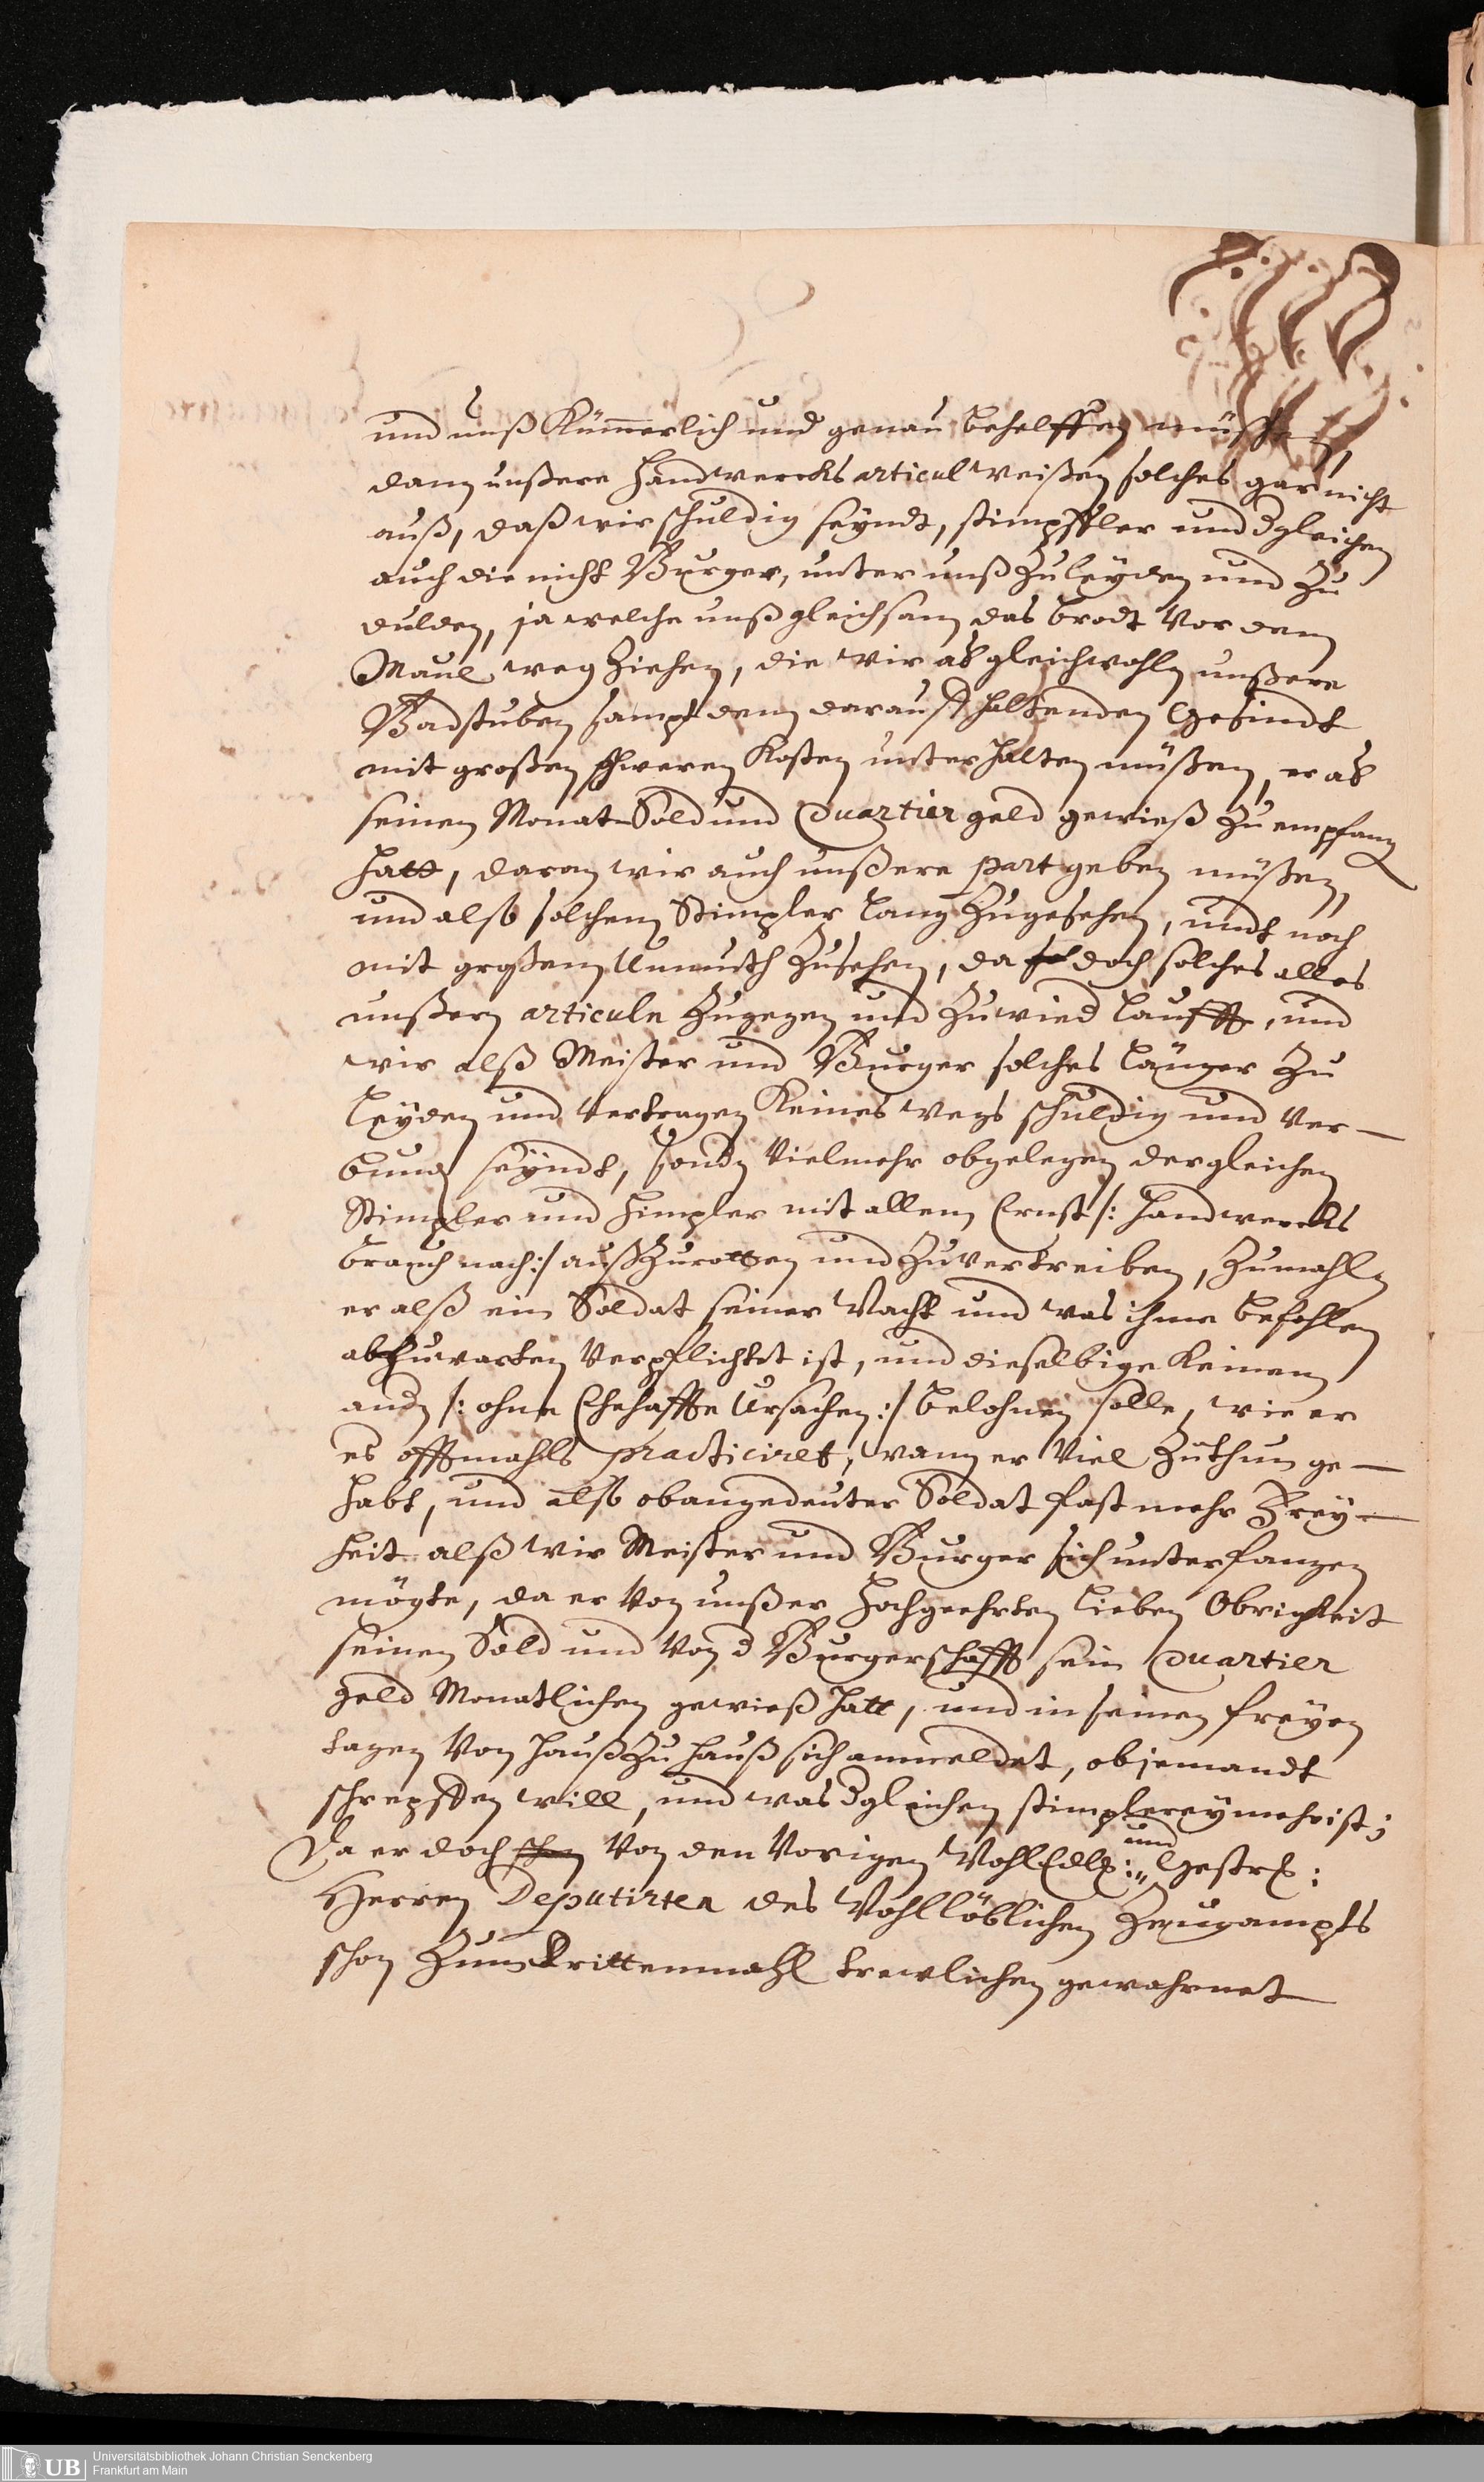 und unß Kümerlich und genau behelffen müssen,
dann unßere Handwercks articul weißen solches gar nicht
auß, daß wir schuldig seyndt, stimpffler und dgleichen
auch die nicht Burger, unter unß Zu leyden und Zu
dulden, ja welche unß gleichsam das brodt Vor dem
Maul weg Ziehen, die wir aber gleichwohln unßere
Badstuben sampt dem darauff haltenden Gesindt
mit großen schweren Kosten unterhalten müßen, er aber
seinen Monat Sold und Quartier geld gewieß Zu empfang
hatt, daran wir auch unßere part geben müßen,
und also solchem Stimpler lang Zugesehen, undt noch
mit großem Unmuth Zusehen, da doch solches alles
unßern articuln Zugegen und Zuwied laufft, und
wir alß Meister und Burger solches länger Zu
leyden und Vertragen Keines wegs schuldig und Ver-
bund seyndt, sondn Vielmehr obgelegen dergleichen
Stimpler und Himpler mit allem Ernst /: Handwercks
brauch nach :/ außzurotten und Zuvertreiben, Zumahln
er alß ein Soldat seiner Wacht und was ihme befohlen
abzuwarten Verpflichtet ist, und dieselbige Keinem
andn /: ohne Ehehaffte Ursachen :/ belohnen solle, wie er
es offtmahls practiciret, wann er Viel Zuthun ge-
habt, und also obangedeuter Soldat fast mehr Frey-
heit alß wir Meister und Burger sich unterfangen
mögte, da er Von unßer Hochgeehrten lieben Obrigkeit
seinen Sold und Von d Burgerschafft sein Quartier
geld Monatlichen gewieß hatt, und in seinen freyen
tagen Von Hauß Zu Hauß sich anmeldet, ob jemandt
schrepffen will, und was dgleichen stimplerey mehr ist;
Da er doch schon Von den Vorigen WohlEdle: und Gestre:
Herren Deputirten des Wohllöblichen Zeugampts
schon Zum drittenmahl trewlichen gewahrnet
Universitätsbibliothek Johann Christian Senckenberg
Frankfurt am Main
UB